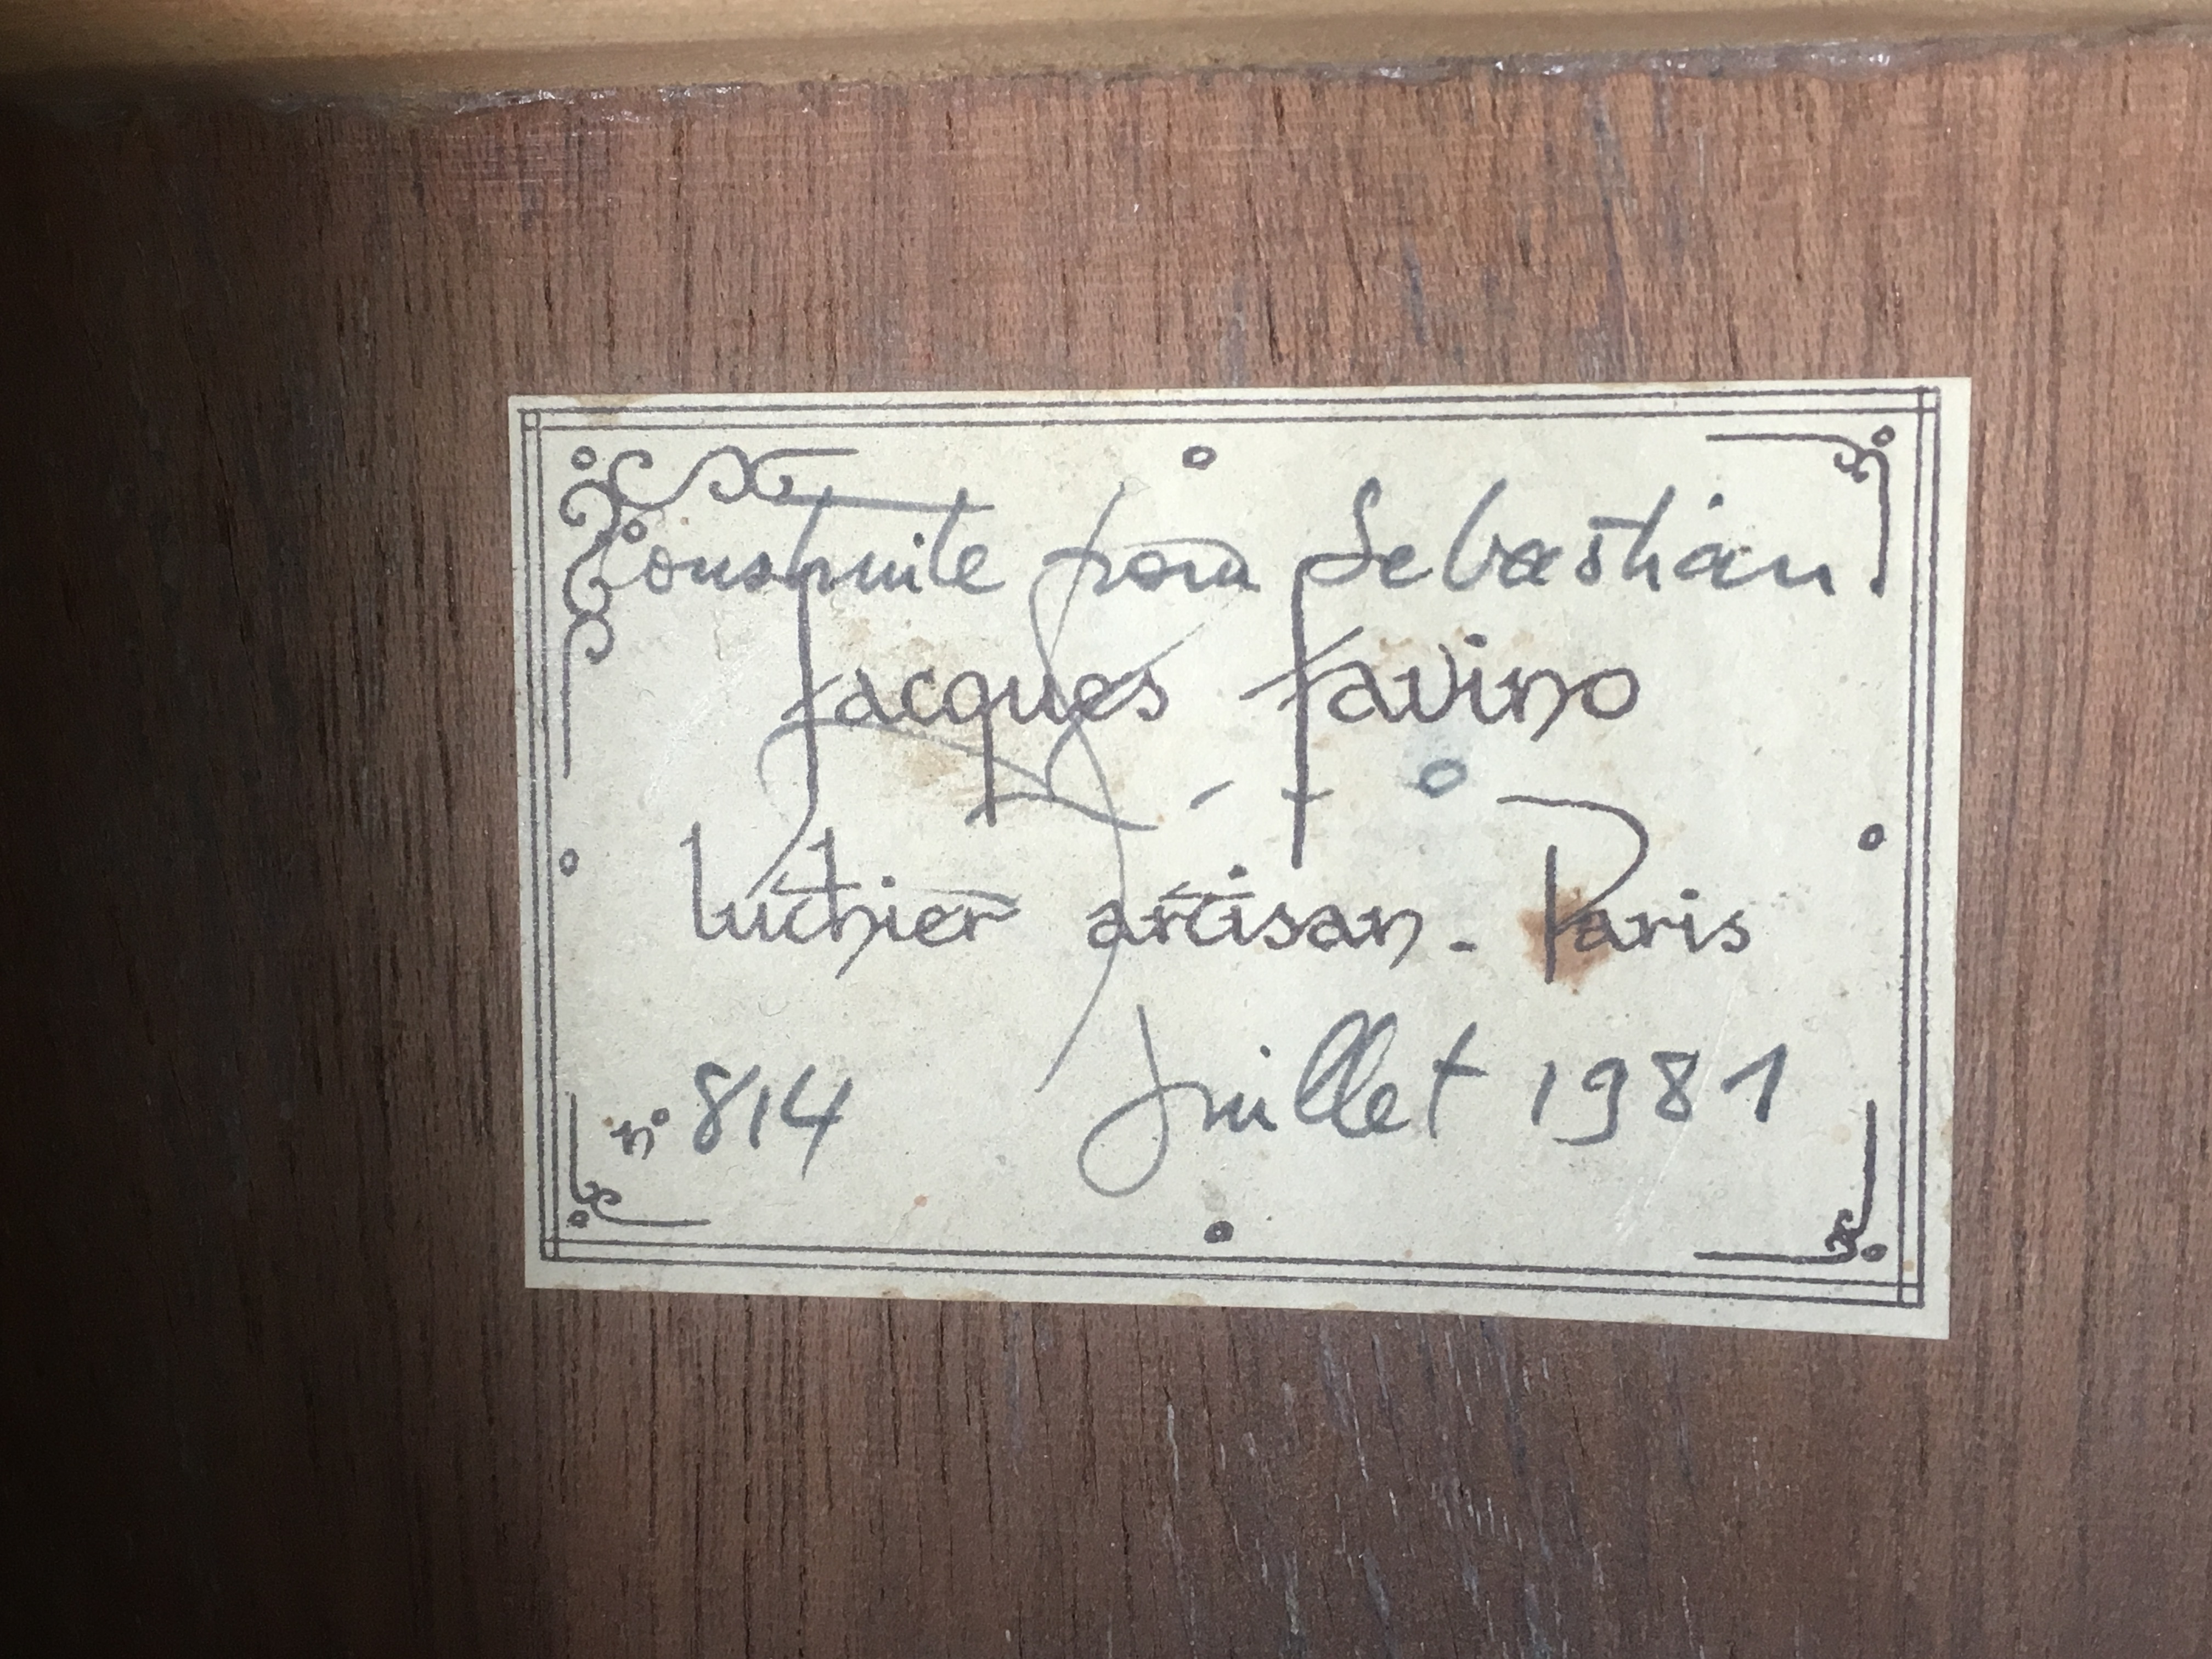 Construite pour Sebastian
Jacques Favino
luthier artisan - Paris
n° 814 Juillet 1981